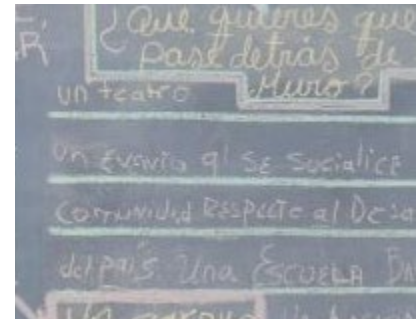 ¿Que quieres que
pase detrás de
Muro?
un teatro
un Evento q' se socialice
Comunidad Respecto al
del país Una Escuela
Un